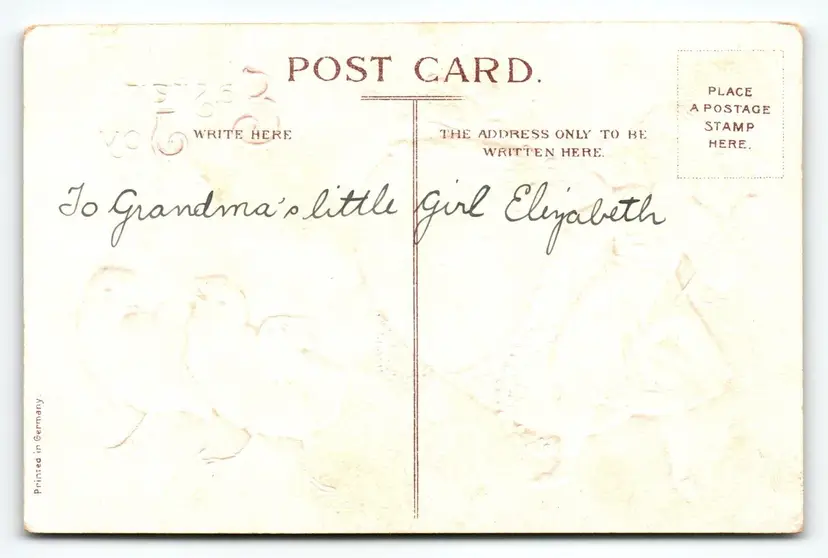 POST CARD.
WRITE HERE
THE ADDRESS ONLY TO BE
WRITTEN HERE.
PLACE
A POSTAGE
STAMP
HERE.
To Grandma's little girl Elizabeth
Printed in Germany